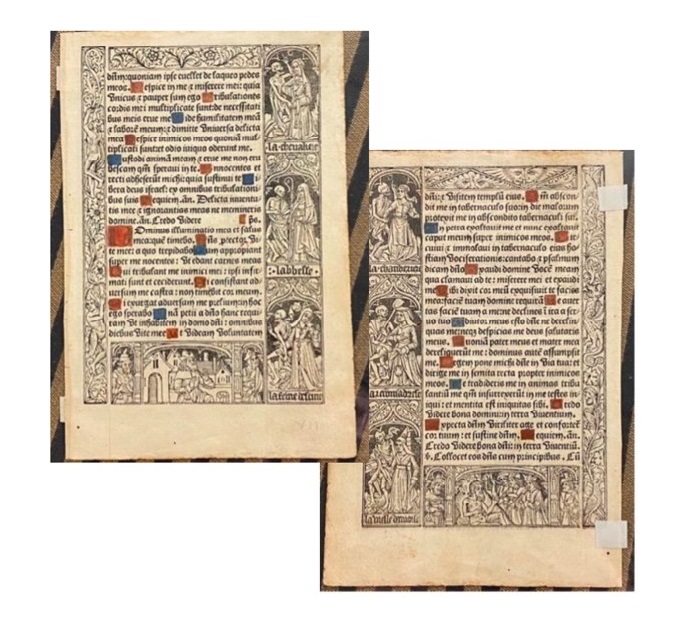 dñm: quoniam ipse euellet de laqueo pedes
meos. Respice in me ⁊ miserere mei: quia
vnicus ⁊ pauper sum ego Tribulationes
cordis mei multiplicate sunt: de necessitati
bus meis erue me Vide humilitatem meã
⁊ laborē meum: ⁊ dimitte vniuersa delicta
mea Respice inimicos meos quoniã mul-
tiplicati sunt: et odio iniquo oderunt me.
Custodi animã meam ⁊ erue me non eru
bescam qm̃ speraui in te. Innocentes et
recti adheserũt michi: quia sustinui te Li
bera deus israel: ex omnibus tribulationi
bus suis Requiem. añ. Delicta iuuentu
tis mee ⁊ ignorantias meas ne memineris
domine. añ. Credo videre ps.
Dominus illuminatio mea et salus
mea: quē timebo. Dñs ptector vi-
te mee: a quo trepidabo Dum appropiant
super me nocentes: vt edant carnes meas
Qui tribulant me inimici mei: ipsi infir
mati sunt et ceciderunt. Si consistant ad-
uersum me castra: non timebit cor meum.
Si exurgat aduersum me prelium: in hoc
ego sperabo Unã petii a dño hanc requi-
ram vt inhabitem in domo dñi: omnibus
diebus vite mee Ut videam voluntatem
labbesse
dñi: ⁊ visitem templũ eius. Qm̃ abscon
dit me in tabernaculo suo: in die malorum
protexit me in abscondito tabernaculi sui.
In petra exaltauit me et nunc exaltauit
caput meum super inimicos meos. Cir
cuiui ⁊ immolaui in tabernaculo eius ho
stiam vociferationis: cantabo ⁊ psalmum
dicam dño Exaudi domine vocē meam
qua clamaui ad te: miserere mei et exaudi
me Tibi dixit cor meũ exquisiuit te facies
mea: faciē tuam domine requirã Ne auer
tas faciē tuam a me: ne declines ĩ ira a ser-
uo tuo Adiutor meus esto dñe ne derelin
quas me: neq; despicias me deus salutaris
meus. Quoniã pater meus et mater mea
dereliquerũt me: dominus autē assumpsit
me. Legem pone michi dñe in via tua: et
dirige me in semita recta propter inimicos
meos. Ne tradideris me in animas tribu
lantiũ me qm̃ insurrexerũt in me testes in
iqui: et mentita est iniquitas sibi. Credo
videre bona domini: in terra viuentium.
Expecta dñm viriliter age et confortet
cor tuum: et sustine dñm. Requiem. añ.
Credo videre bona dñi: in terra viuentiũ.
v. Collocet eos dñs cum principibus. Cũ